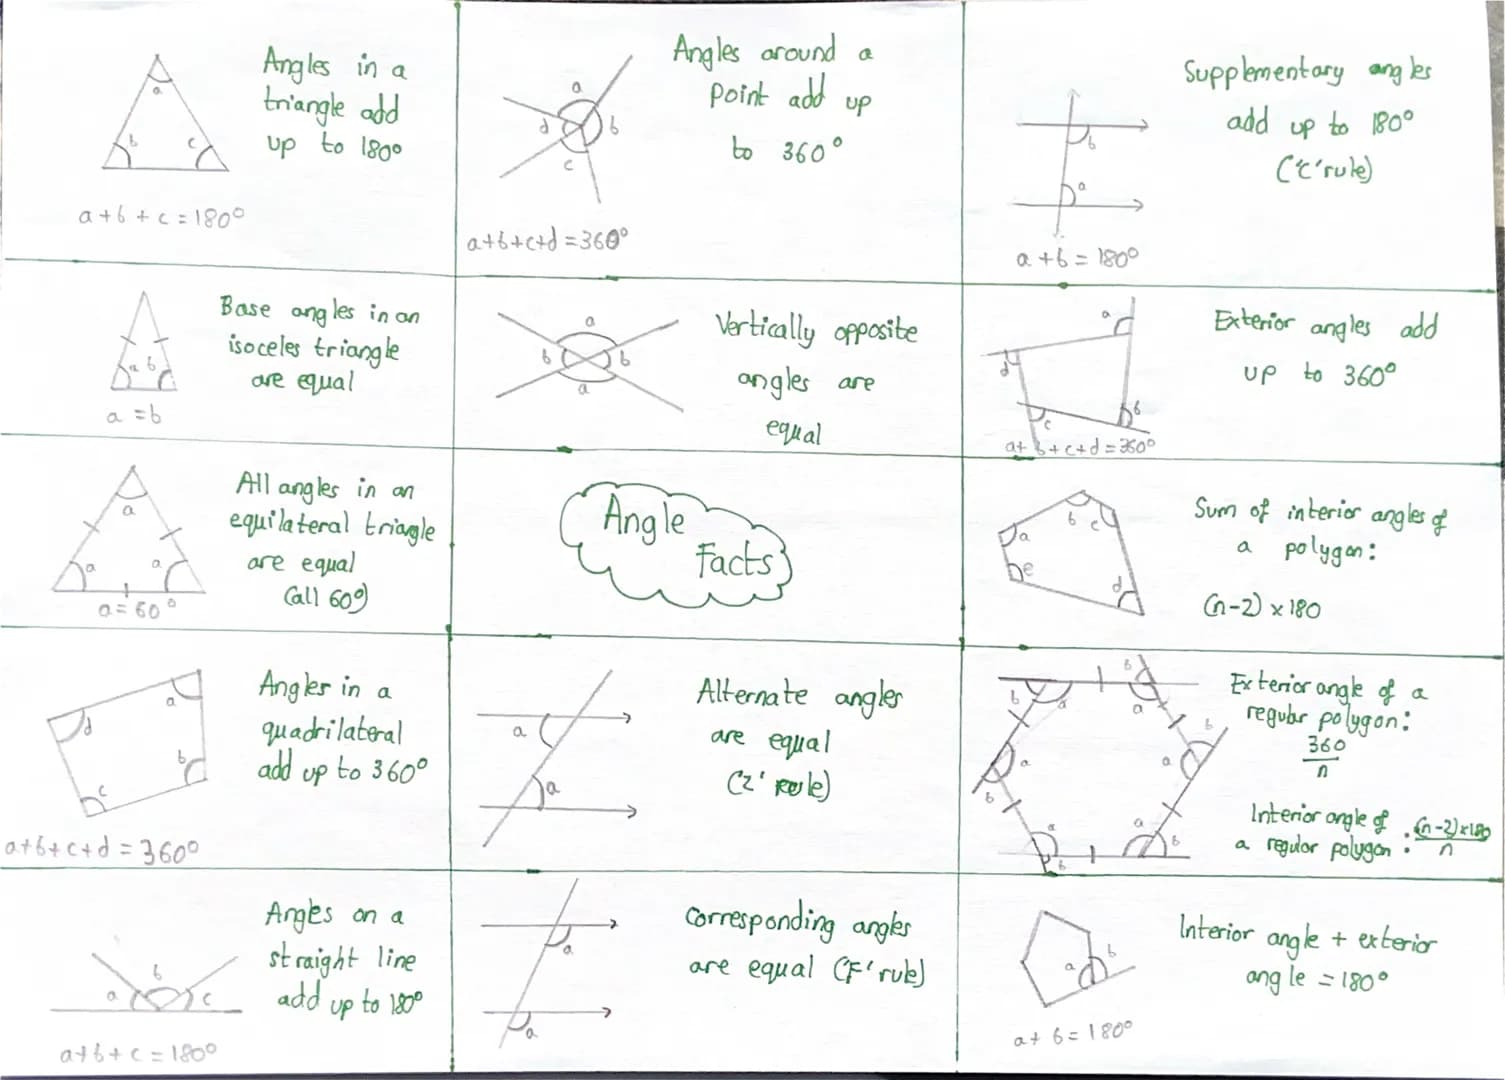 Angles in a
triangle add
up to 180°
a
b
c
a+b+c=180°
Angles around a
point add up
to 360°
a
b
c
d
a+b+c+d=360°
Supplementary angles
add up to 180°
('C' rule)
b
a
a+b=180°
Base angles in an
isoceles triangle
are equal
a b
a=b
Vertically opposite
angles are
equal
a
b b
a
Exterior angles add
up to 360°
a
d
b
c
a+b+c+d=360°
All angles in an
equilateral triangle
are equal
(all 60°)
a
a a
a=60°
Angle
Facts
Sum of interior angles of
a polygon:
(n-2)×180
b c
a
e
d
Angles in a
quadrilateral
add up to 360°
a
d
b
c
a+b+c+d=360°
Alternate angles
are equal
('Z' rule)
a
a
Exterior angle of a
regular polygon:
360
n
Interior angle of
a regular polygon : (n-2)×180
n
b
b a a
b
a a
b
a a
b b
Angles on a
straight line
add up to 180°
b
a c
a+b+c=180°
Corresponding angles
are equal ('F' rule)
a
a
Interior angle + exterior
angle = 180°
a b
a+b=180°